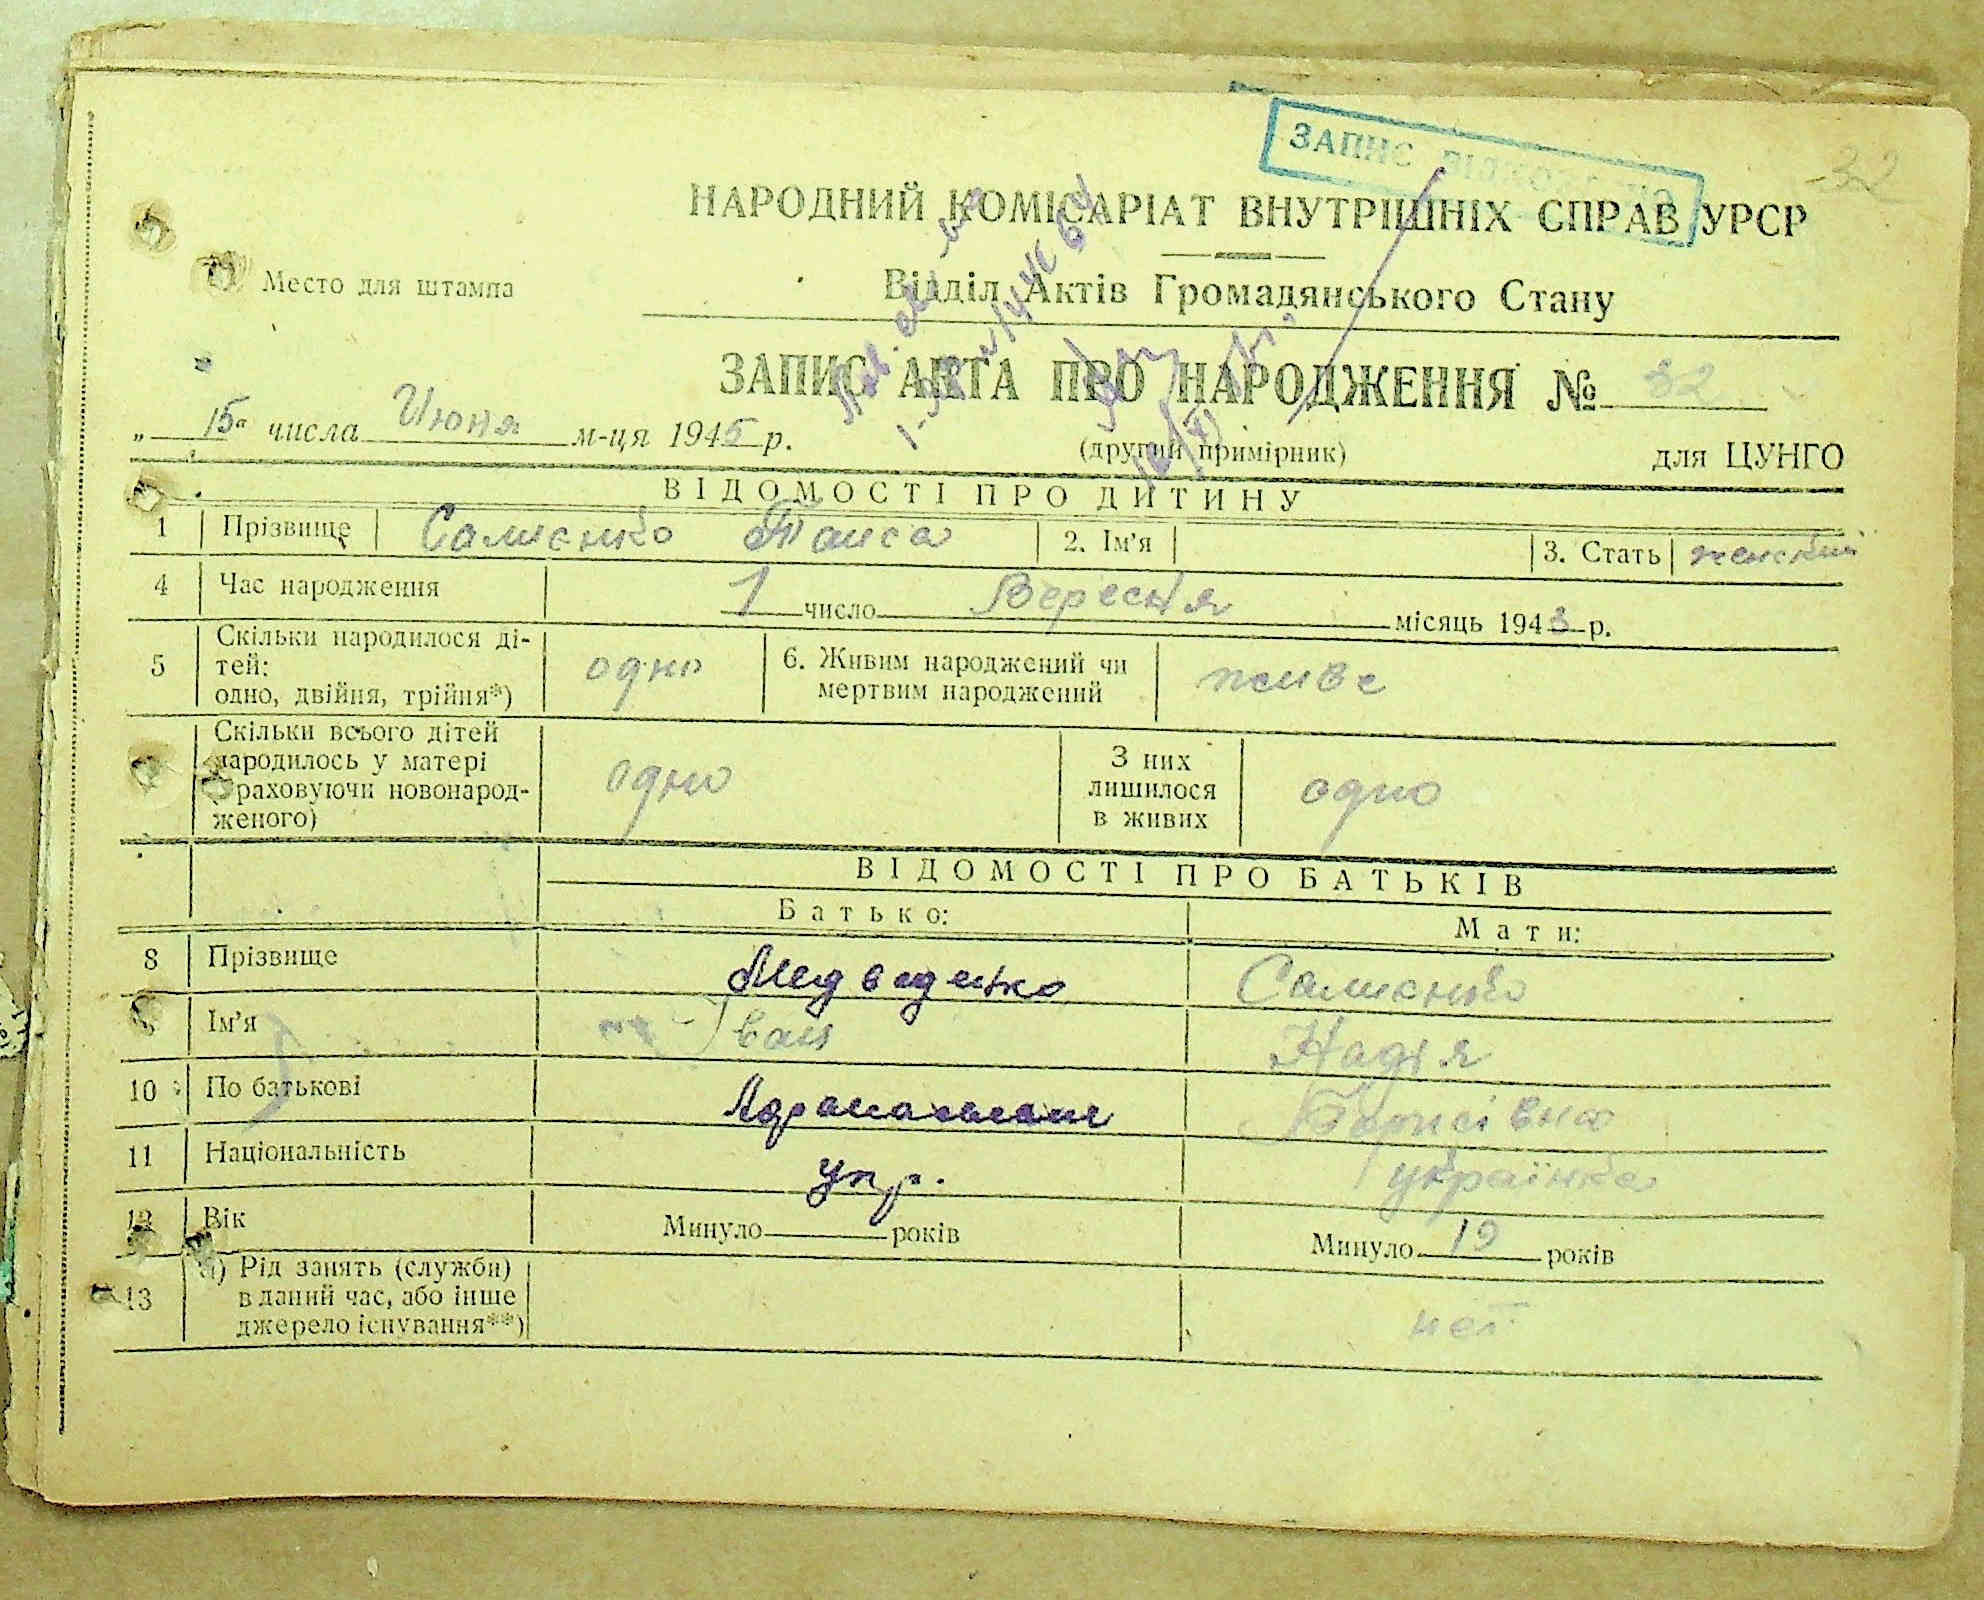 ЗАПИС
32
НАРОДНИЙ КОМІСАРІАТ ВНУТРІШНІХ СПРАВ УРСР
Место для штампа
Відділ Актів Громадянського Стану
ЗАПИС АКТА ПРО НАРОДЖЕННЯ № 32
„ 15" числа Июня м-ця 1945 р.
(другий примірник)
для ЦУНГО
ВІДОМОСТІ ПРО ДИТИНУ
1 Прізвище Салиенко Таиса 2. Ім'я 3. Стать женский
4 Час народження 1 число Вересня місяць 1943 р.
5 Скільки народилося ді-
тей:
одно, двійня, трійня*) одно 6. Живим народжений чи
мертвим народжений живе
Скільки всього дітей
народилось у матері
враховуючи новонарод-
женого) одно З них
лишилося
в живих одно
ВІДОМОСТІ ПРО БАТЬКІВ
Батько: Мати:
8 Прізвище Медведенко Салиенко
Ім'я Іван Надія
10 По батькові Борисівна
11 Національність укр. українка
12 Вік Минуло років Минуло 19 років
13 а) Рід занять (служби)
в даний час, або інше
джерело існування**) нет